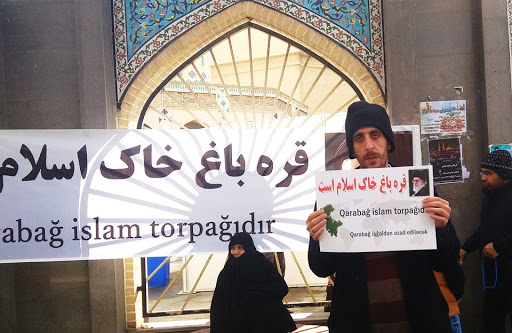 قره باغ خاک اسلام
arabağ islam torpağıdır
قره باغ خاک اسلام است
Qarabağ islam torpağıd
Qarabağ işğaldan azad ediləcək